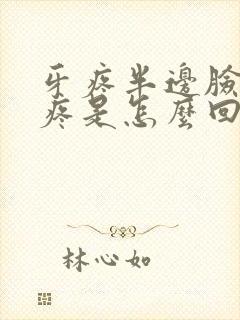 牙疼半邊臉
疼是怎麼回
林心如